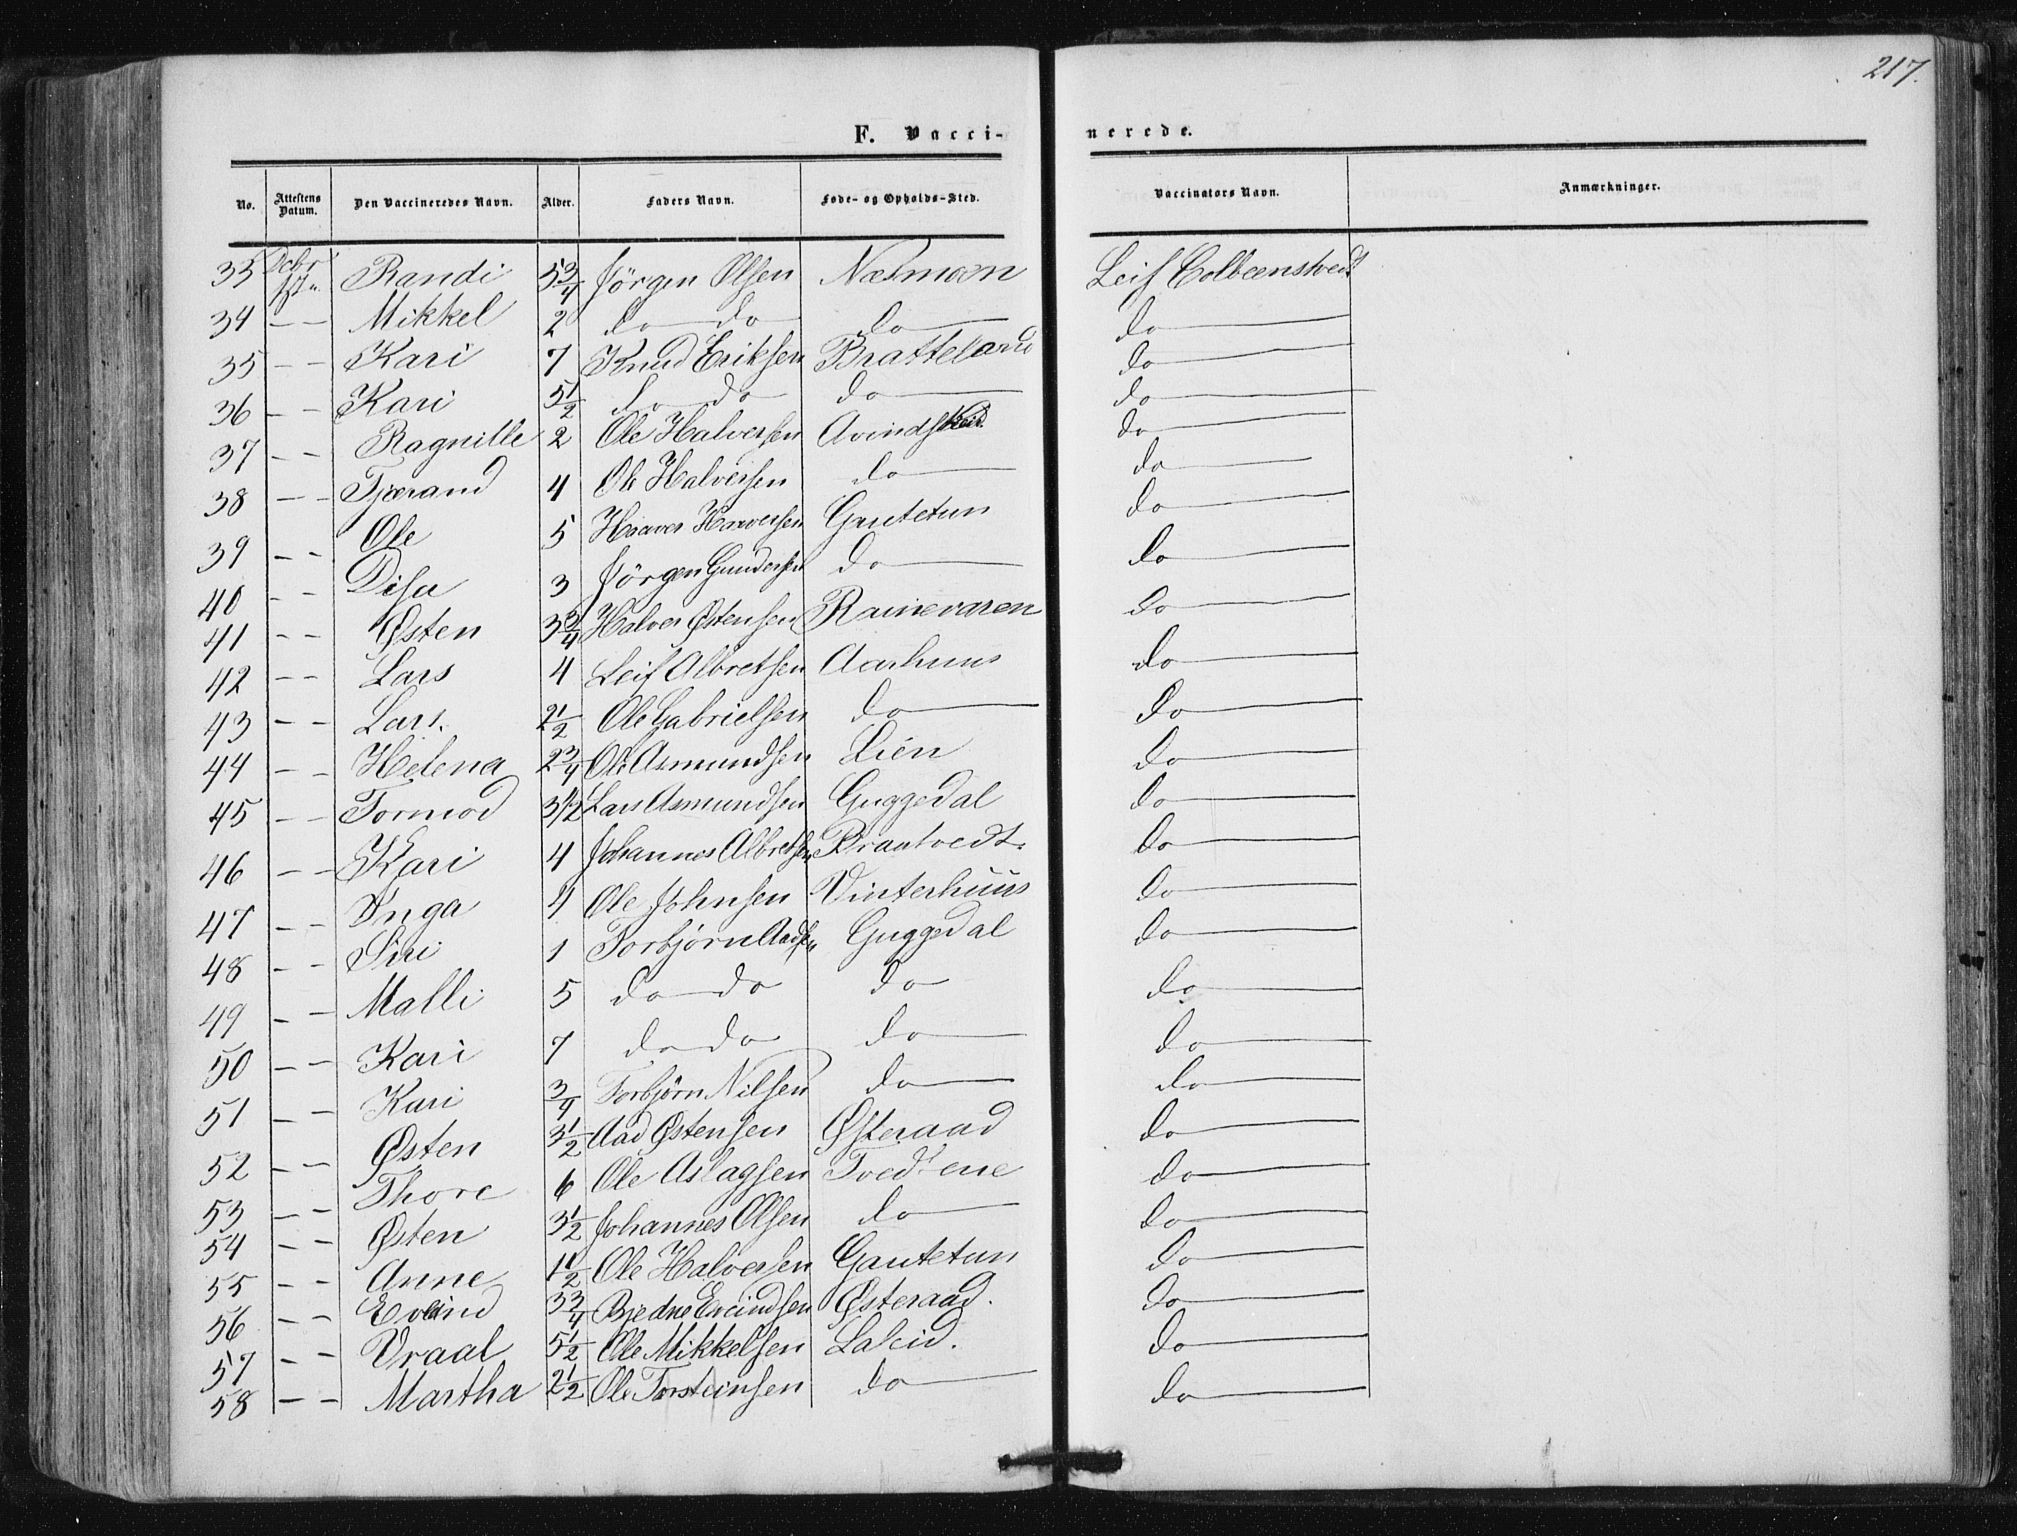 217.
F. Vacci- nerede.
No. Attestens Datum. Den Vaccineredes Navn. Alder. Faders Navn. Føde- og Opholds-Sted. Vaccinators Navn. Anmærkninger.
33 Decbr Randi 5 3/4 Jörgen Olsen Næsmoen Leif
34 — — Mikkel 2 do do do do
35 — — Kari 7 Knud Eriksen Bratteland do
36 — — Kari 5 1/2 do do do do
37 — — Ragnille 2 Ole Halversen do
38 — — Tjærand 4 Ole Halversen do do
39 — — Ole 5 Haaver Haaversen Gautetun do
40 — — Disa 3 Jörgen Gundersen do do
41 — — Østen 3 3/4 Halver Østensen Rainevaren do
42 — — Lars 4 Leif Albretsen Aarhuus do
43 — — Lars. 2 1/2 Ole Gabrielsen do do
44 — — Helena 2 3/4 Ole Asmundsen Lien do
45 — — Tormod 3 1/2 Lars Asmundsen Guggedal do
46 — — Kari 4 Johannes Albretsen Brautvedt. do
47 — — Inga 4 Ole Johnsen Vinterhuus do
48 — — Siri 1 Torbjørn Aadsen Guggedal do
49 — — Malli 5 do do do do
50 — — Kari 7 do do do do
51 — — Kari 3/4 Torbjörn Nilsen do do
52 — — Østen 3 1/2 Aad Østensen Østeraad do
53 — — Thore 6 Ole Aslagsen Tvedtene do
54 — — Østen 3 1/2 Johannes Olsen do do
55 — — Anne Ole Halversen Gautetun do
56 — — Evind 3 3/4 Bjedne Evindsen Østeraad. do
57 — — Vraal 5 1/2 Ole Mikkelsen Laleid. do
58 — — Martha 2 1/2 Ole Torsteinsen do do